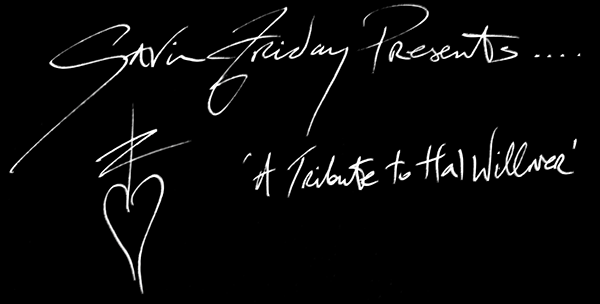 Gavin Friday Presents ....
'A Tribute to Hal Willner'